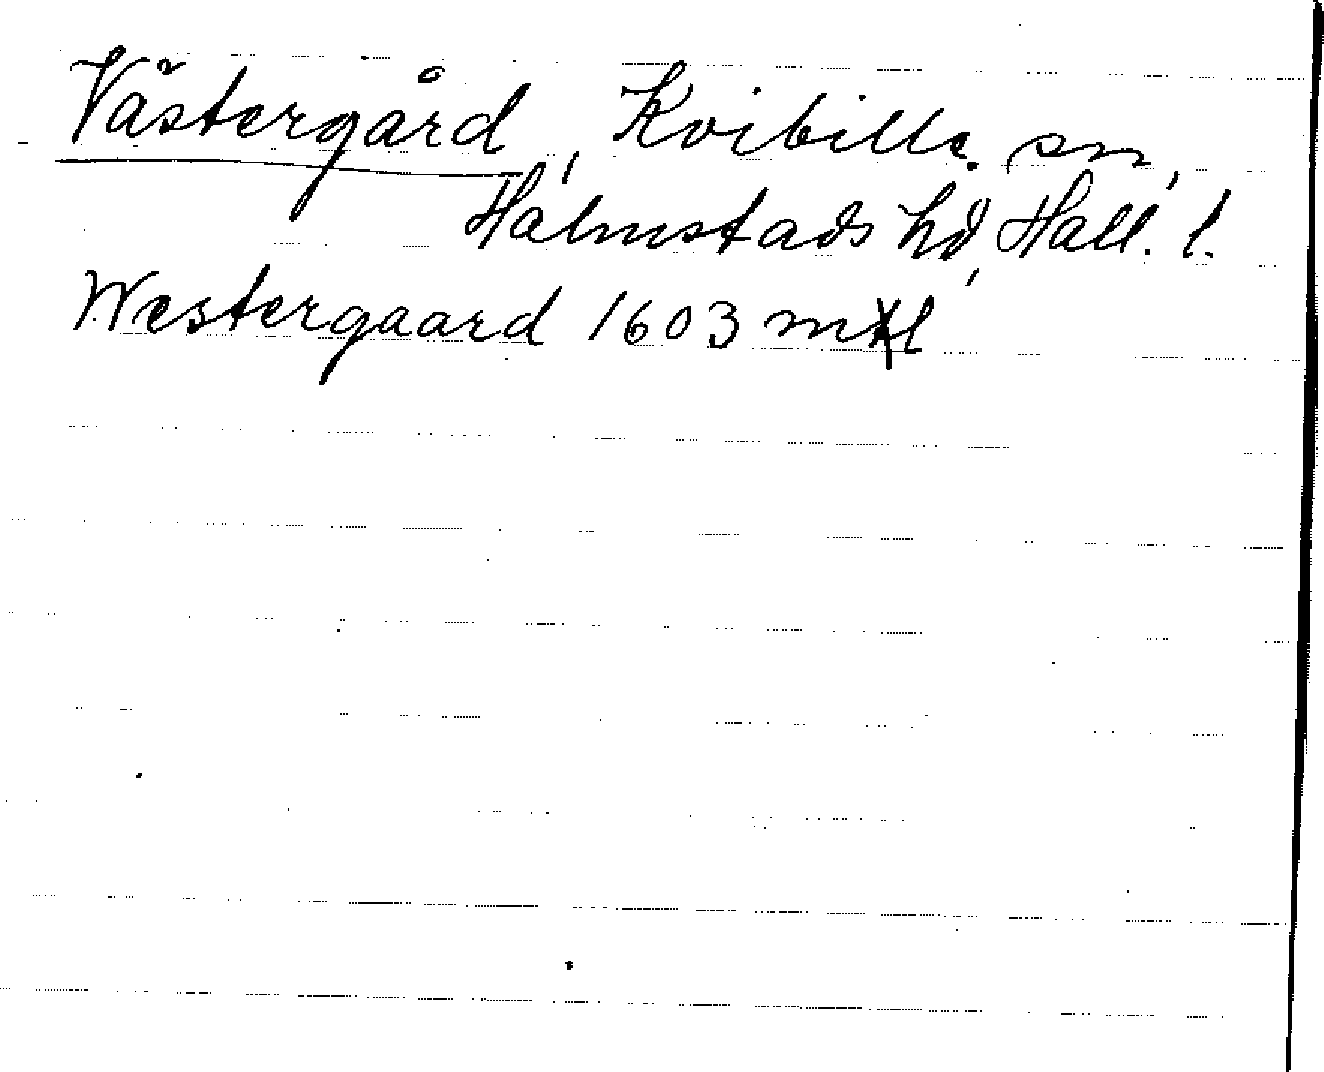 Västergård, Kvibille sn,
Halmstads hd, Hall. l.
Westergaard 1603 mtl